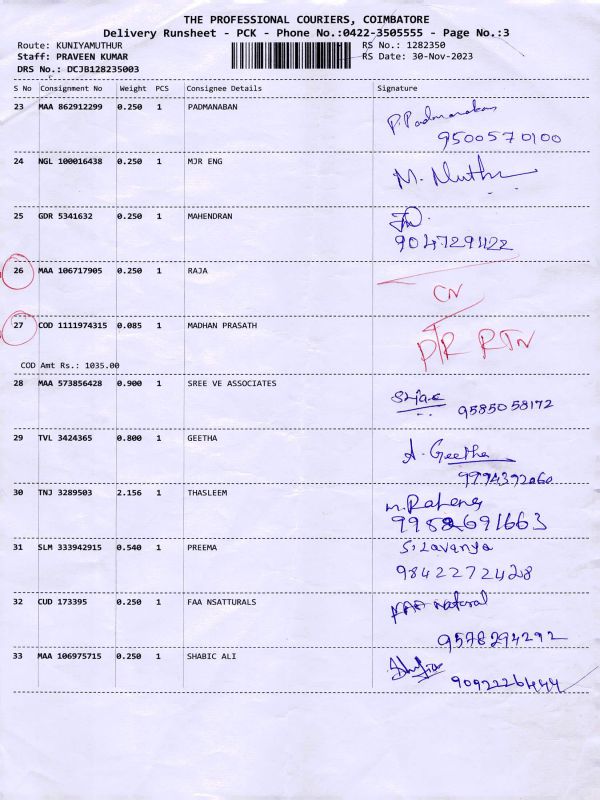 THE PROFESSIONAL COURIERS, COIMBATORE
Delivery Runsheet - PCK - Phone No.:0422-3505555 - Page No.:3
Route: KUNIYAMUTHUR RS No.: 1282350
Staff: PRAVEEN KUMAR RS Date: 30-Nov-2023
DRS No.: DCJB128235003
S No Consignment No Weight PCS Consignee Details Signature
23 MAA 862912299 0.250 1 PADMANABAN P. Padmanaban
9500570100
24 NGL 100016438 0.250 1 MJR ENG M. Muthu
25 GDR 5341632 0.250 1 MAHENDRAN
9047291122
26 MAA 106717905 0.250 1 RAJA
CN
27 COD 1111974315 0.085 1 MADHAN PRASATH
P/R RTN
COD Amt Rs.: 1035.00
28 MAA 573856428 0.900 1 SREE VE ASSOCIATES
9585058172
29 TVL 3424365 0.800 1 GEETHA A. Geetha
9794392060
30 TNJ 3289503 2.156 1 THASLEEM
31 SLM 333942915 0.540 1 PREEMA S. Lavanya
9842272428
32 CUD 173395 0.250 1 FAA NSATTURALS FAA natural
9578294292
33 MAA 106975715 0.250 1 SHABIC ALI